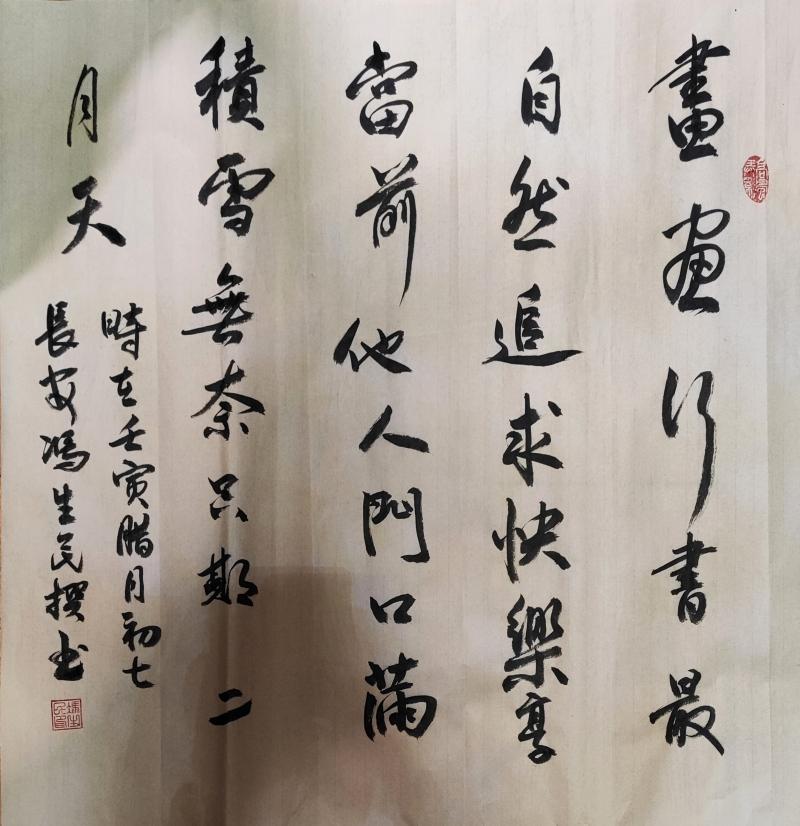 畫画行書最
自然追求快樂享
當前他人門口滿
積雪無奈只期二
月天
時在壬寅腊月初七
長安馮生民撰书